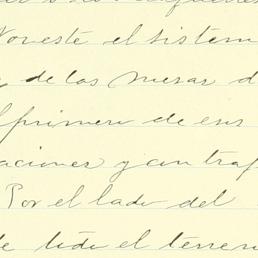 Noreste el sistem
de las mesas d
primero de sus
aciones y con trap
Por el lado del
de todo el terren